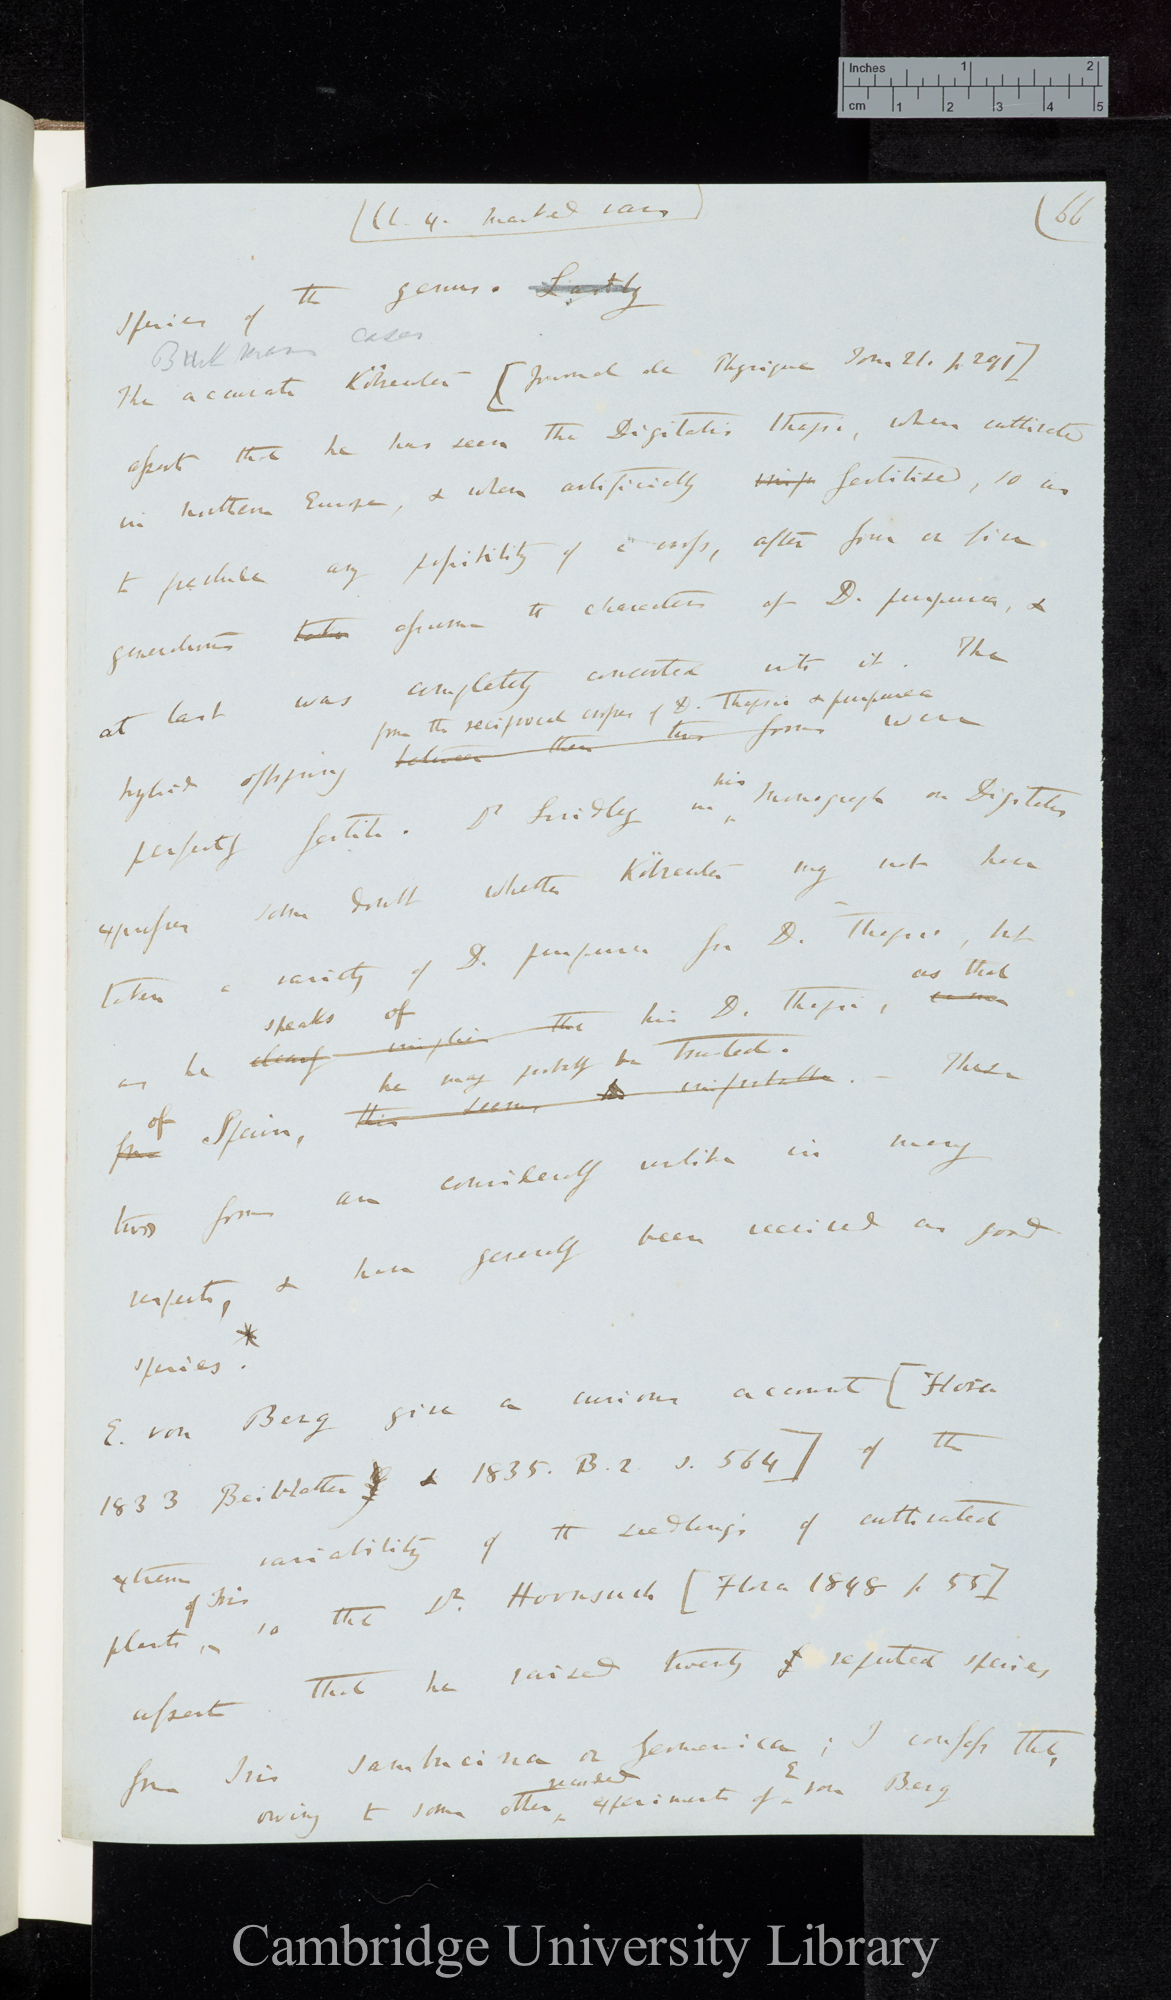 Inches 1 2
cm 1 2 3 4 5
(Ch. 4. marked vars)
(66
species of the genus. Lastly
Buckmans cases
The accurate Kölreuter [Journal de Physique Tom 21. p. 291]
assert that he has seen the Digitalis thapsi, when cultivated
in northern Europe, & when artificially fertilised, so as
to preclude any possibility of a cross, after four or five
generations assume the characters of D. purpurea, &
at last was completely converted into it. The
from the reciprocal crosses of D. Thapsis & purpurea
hybrid offspring between these two forms were
perfectly fertile. Dr Lindley in his Monograph on Digitalis
expresses some doubt whether Kölreuter may not have
taken a variety of D. purpurea for D. Thapsi, but
speaks of as that
as he clearly implies that his D. thapsi,
he may probably be trusted.
of
from Spain, this seems improbable. — These
two forms are considerably unlike in many
respects, & have generally been received as good
species.*
E. von Berg give a curious account [Flora
1833 Beiblatter & 1835. B. 2 s. 564] of the
extreme variability of the seedlings of cultivated
of Iris
plants, so the Dr. Hornsuch [Flora 1848 p 55]
assert that he raised twenty reputed species
from Iris sambucina or germanica; I confess that,
recorded E
owing to some other experiments of von Berg
Cambridge University Library